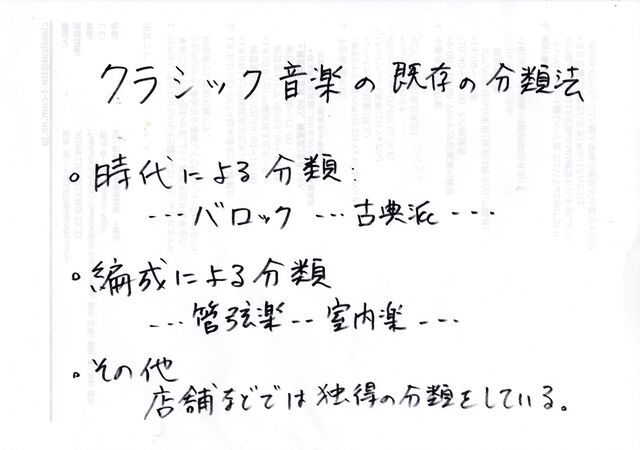 クラシック音楽の既存の分類法
。時代による分類:
---バロック---古典派---
。編成による分類
---管弦楽--室内楽---
。その他
店舗などでは独得の分類をしている。